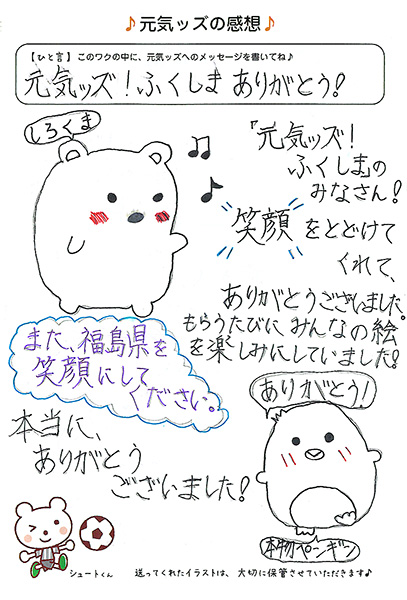 ♪元気ッズの感想♪
【ひと言】このワクの中に、元気ッズへのメッセージを書いてね♪
元気ッズ！ふくしま ありがとう！
しろくま
『元気ッズ！
ふくしま』の
みなさん！
笑顔をとどけて
くれて、
ありがとうございました。
もらうたびにみんなの絵
を楽しみにしていました！
また、福島県を
笑顔にして
ください。
ありがとう！
本当に、
ありがとう
ございました！
本物ペンギン
シュートくん
送ってくれたイラストは、大切に保管させていただきます♪